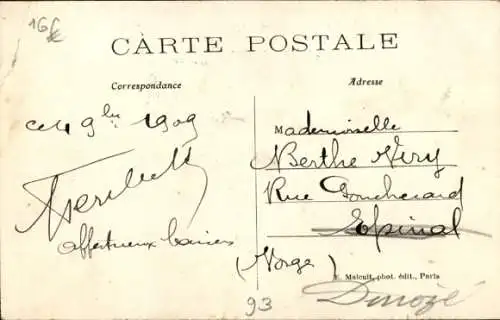 16€
CARTE POSTALE
Correspondance
Adresse
ce 4 9bre 1909
affectueux baisers
Mademoiselle
Berthe Véry
Rue
Epinal
(Vosges)
E. Malcuit, phot. édit., Paris
93